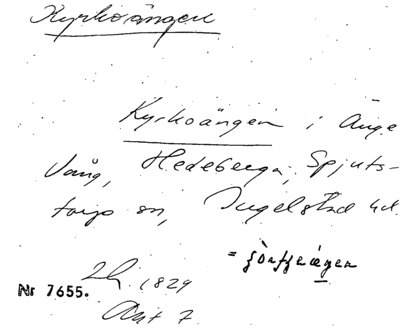 Kyrkoängen
Kyrkoängen i Änge
Vång, Hedeberga, Spjuts-
torps sn, Ingelstad hd.
=
Lh. 1829
Nr 7655.
Akt 7